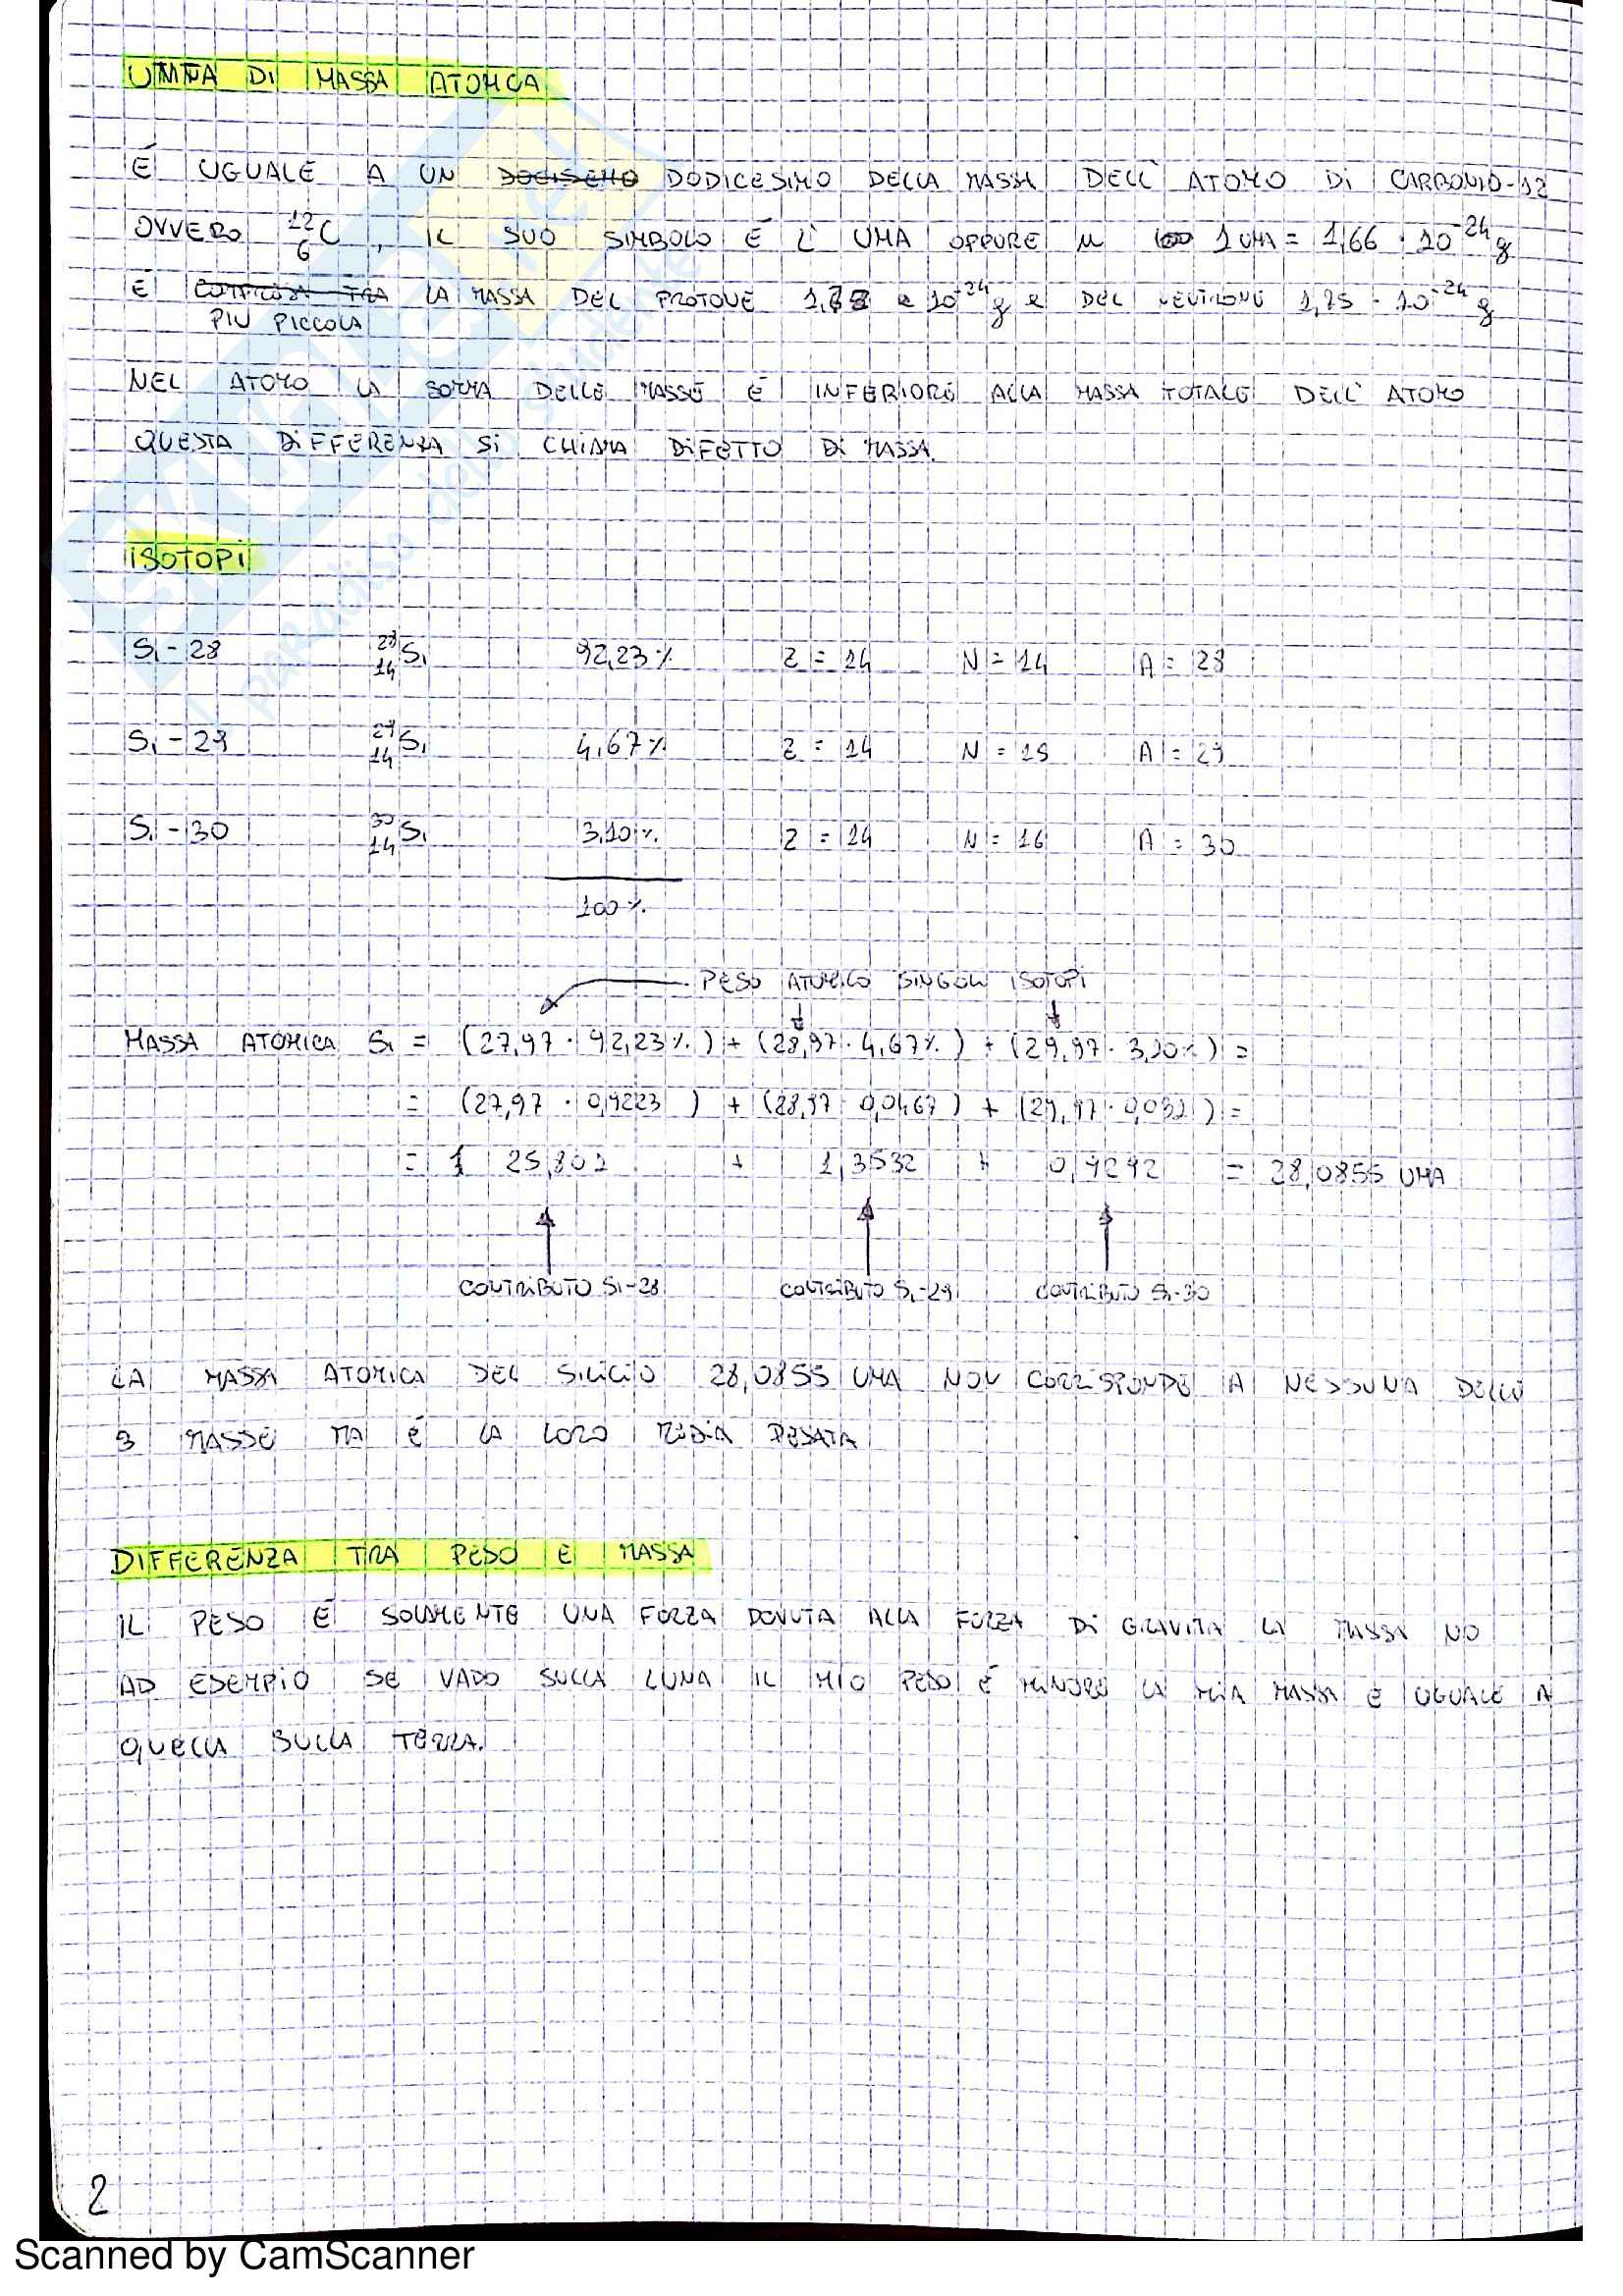 UNITÀ DI MASSA ATOMICA
É UGUALE A UN DODICESIMO DELLA MASSA DELL'ATOMO DI CARBONIO-12
OVVERO ¹²₆C, IL SUO SIMBOLO É L'UMA OPPURE u 1 UMA = 1,66 · 10⁻²⁴ g
E LA MASSA DEL PROTONE 10⁻²⁴ g e DEL NEUTRONE 1,75 · 10⁻²⁴ g
PIÚ PICCOLA
NEL ATOMO LA SOMMA DELLE MASSE É INFERIORE ALLA MASSA TOTALE DELL'ATOMO
QUESTA DIFFERENZA SI CHIAMA DIFETTO DI MASSA.
ISOTOPI
Si-28 ²⁸₁₄Si 92,23% Z = 14 N = 14 A = 28
Si-29 ²⁹₁₄Si 4,67% Z = 14 N = 15 A = 29
Si-30 ³⁰₁₄Si 3,10% Z = 14 N = 16 A = 30
100%
PESO ATOMICO SINGOLI ISOTOPI
MASSA ATOMICA Si = (27,97 · 92,23%) + (28,97 · 4,67%) + (29,97 · 3,10%) =
= (27,97 · 0,9223) + (28,97 · 0,0467) + (29,97 · 0,031) =
= 25,802 + 1,3532 + 0,9292 = 28,0855 UMA
CONTRIBUTO Si-28 CONTRIBUTO Si-29 CONTRIBUTO Si-30
LA MASSA ATOMICA DEL SILICIO 28,0855 UMA NON CORRISPONDE A NESSUNA DELLE
3 MASSE MA É LA LORO MEDIA PESATA
DIFFERENZA TRA PESO E MASSA
IL PESO É SOLAMENTE UNA FORZA DOVUTA ALLA FORZA DI GRAVITA LA MASSA NO
AD ESEMPIO SE VADO SULLA LUNA IL MIO PESO É MINORE LA MIA MASSA E UGUALE A
QUELLA SULLA TERRA.
2
Scanned by CamScanner